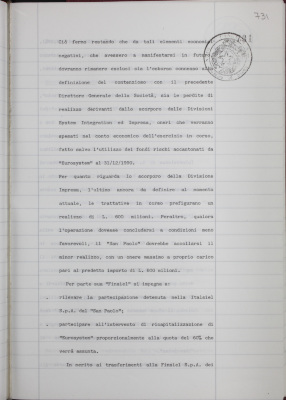 731
Ciò fermo restando che da tali elementi economici
negativi, che avessero a manifestarsi in futuro
dovranno rimanere esclusi sia l'esborso connesso alla
definizione del contenzioso con il precedente
Direttore Generale della Società, sia le perdite di
realizzo derivanti dallo scorporo delle Divisioni
System Integration ed Impresa, oneri che verranno
spesati nel conto economico dell'esercizio in corso,
fatto salvo l'utilizzo dei fondi rischi accantonati da
"Eurosystem" al 31/12/1990.
Per quanto riguarda lo scorporo della Divisione
Impresa, l'ultimo ancora da definire al momento
attuale, le trattative in corso prefigurano un
realizzo di L. 600 milioni. Peraltro, qualora
l'operazione dovesse concludersi a condizioni meno
favorevoli, il "San Paolo" dovrebbe accollarsi il
minor realizzo, con un onere massimo a proprio carico
pari al predetto importo di L. 600 milioni.
Per parte sua "Finsiel" si impegna a:
- rilevare la partecipazione detenuta nella Italsiel
S.p.A. dal "San Paolo";
- partecipare all'intervento di ricapitalizzazione di
"Eurosystem" proporzionalmente alla quota del 60% che
verrà assunta.
In merito ai trasferimenti alla Finsiel S.p.A. dei